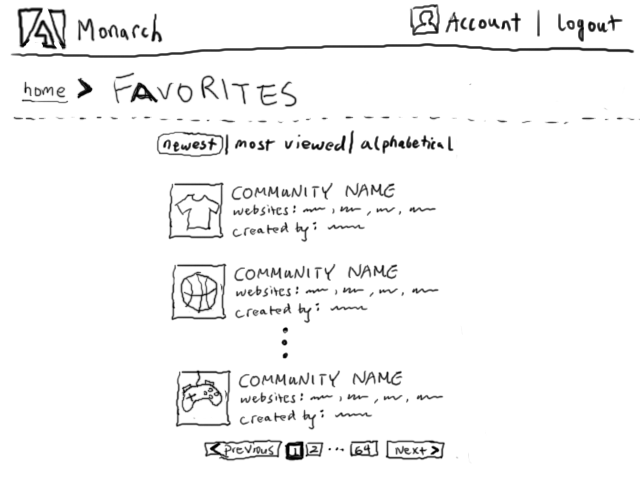 Monarch
Account | Logout
home > FAVORITES
newest / most viewed / alphabetical
COMMUNITY NAME
websites: , , ,
created by:
COMMUNITY NAME
websites: , , ,
created by:
COMMUNITY NAME
websites: , , ,
created by:
< Previous 1 2 ... 64 Next >